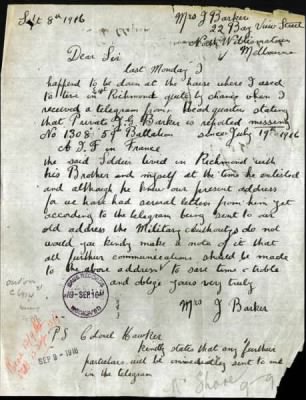 Sept 8th 1916
Mrs J Barker
22 Bay View Street
North Williamstown
Melbourne
Dear Sir
last Monday I
happend to be down at the house where I used
to live in Richmond quite by change when I
received a telegram from Headquarter stating
that Private J G Barker is reported missing
No 1308 5th Battalion since July 19th 1916
A I F in France
the said Soldier lived in Richmond with
his Brother and myself at the time he enlisted
and although he knew our present address
for we have had several letters from him yet
according to the telegram being sent to our
old address the Military Authority do not
would you kindly make a note of it that
all further communications should be made
to the above address to save time & trouble
and oblige yours very truly
Mrs J Barker
19 SEP. 1916
SEP 9 - 1916
PS Colonel Hawker
kindly states that any further
particulars will be immediately sent to me
in the telegram